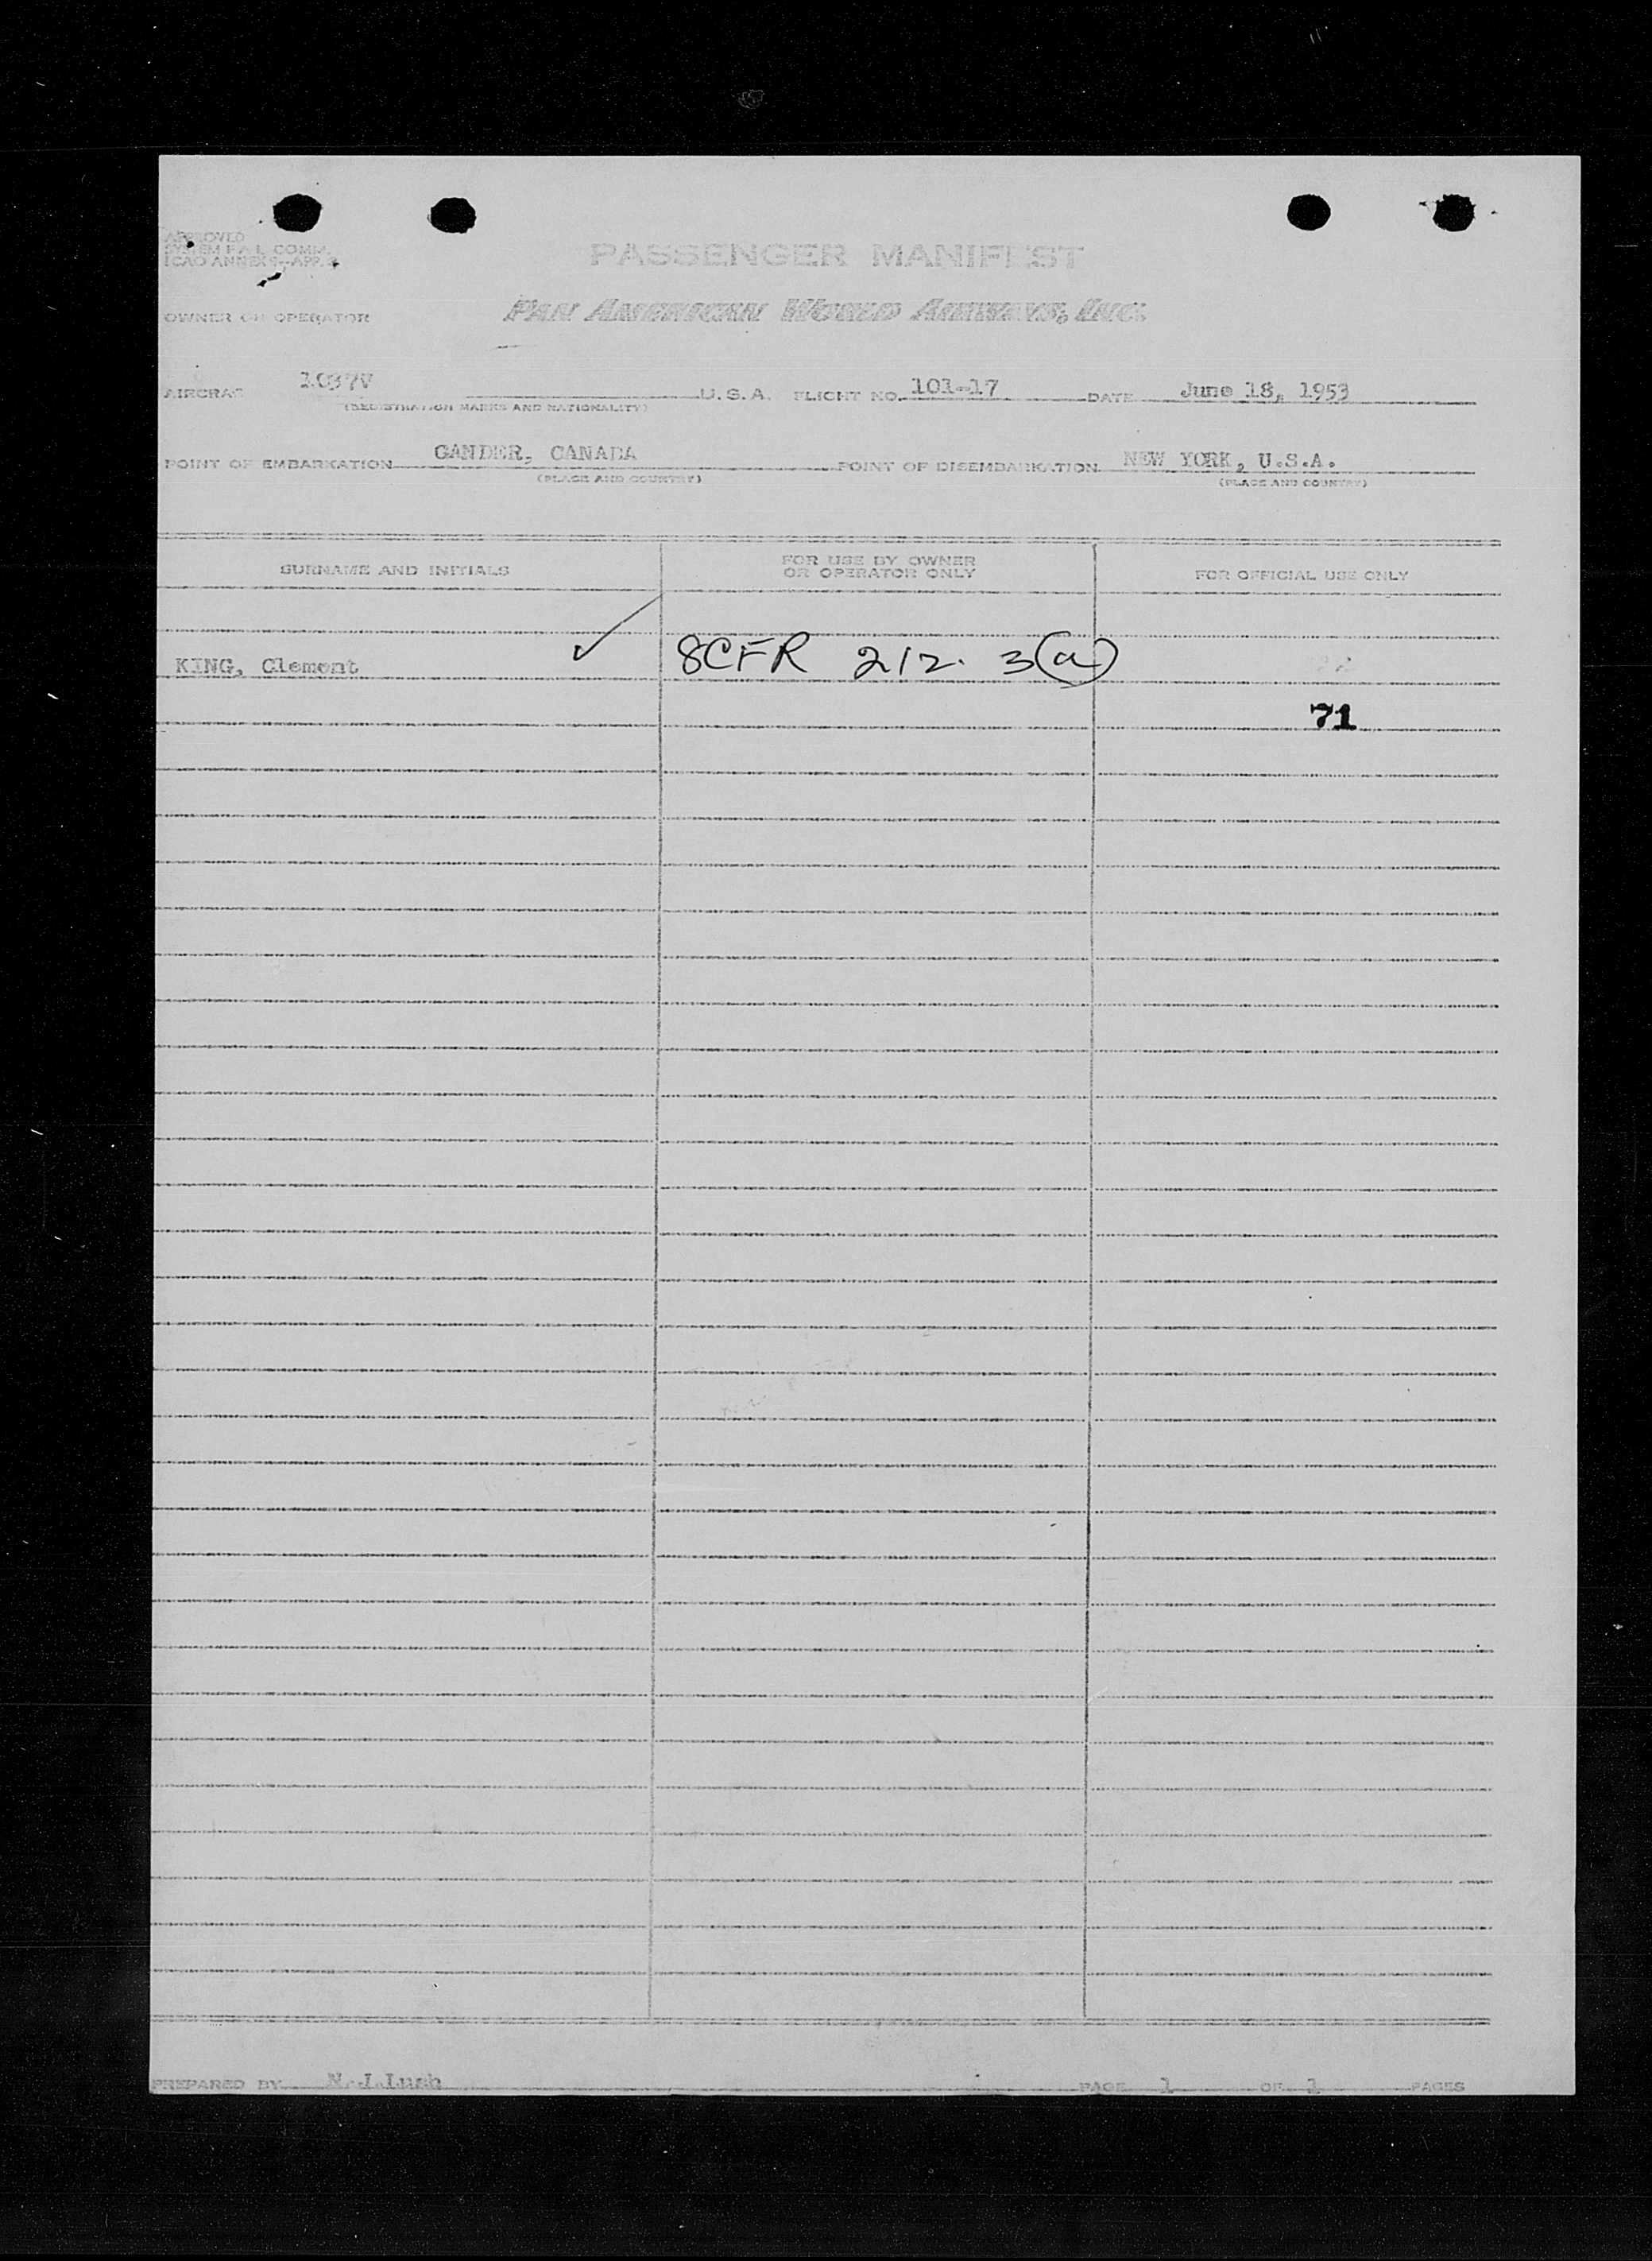 APPROVED
SYSTEM F.A.L. COMM.
ICAO ANNEX 9--APP. 3
PASSENGER MANIFEST
OWNER OR OPERATOR PAN AMERICAN WORLD AIRWAYS, INC.
AIRCRAFT 1037V U.S.A. FLIGHT NO. 101-17 DATE June 18, 1953
(REGISTRATION MARKS AND NATIONALITY)
POINT OF EMBARKATION GANDER, CANADA POINT OF DISEMBARKATION NEW YORK, U.S.A.
(PLACE AND COUNTRY) (PLACE AND COUNTRY)
SURNAME AND INITIALS FOR USE BY OWNER OR OPERATOR ONLY FOR OFFICIAL USE ONLY
KING, Clement ✓ 8CFR 212.3(a)
71
PREPARED BY N.J.Lush PAGE 1 OF 1 PAGES